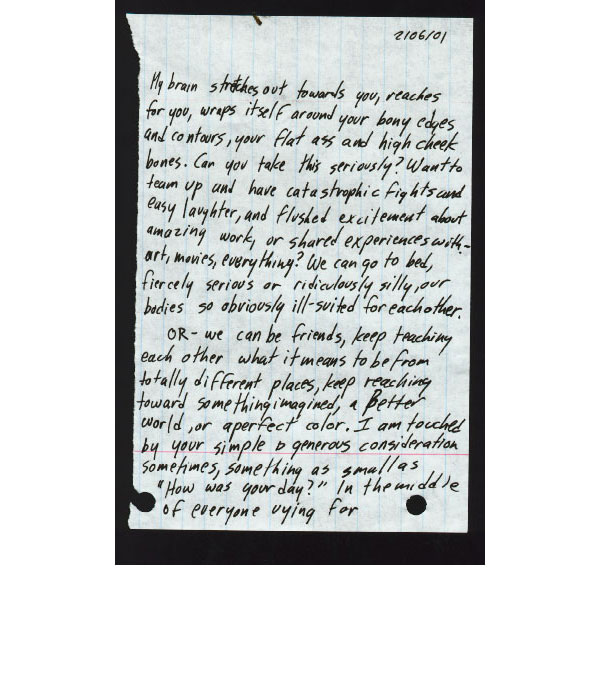 2/06/01
My brain stretches out towards you, reaches
for you, wraps itself around your bony edges
and contours, your flat ass and high cheek
bones. Can you take this seriously? Want to
team up and have catastrophic fights and
easy laughter, and flushed excitement about
amazing work, or shared experiences with-
art, movies, everything? We can go to bed,
fiercely serious or ridiculously silly, our
bodies so obviously ill-suited for each other.
OR- we can be friends, keep teaching
each other what it means to be from
totally different places, keep reaching
toward something imagined, a Better
world, or a perfect color. I am touched
by your simple & generous consideration
sometimes, something as small as
"How was your day?" In the middle
of everyone vying for